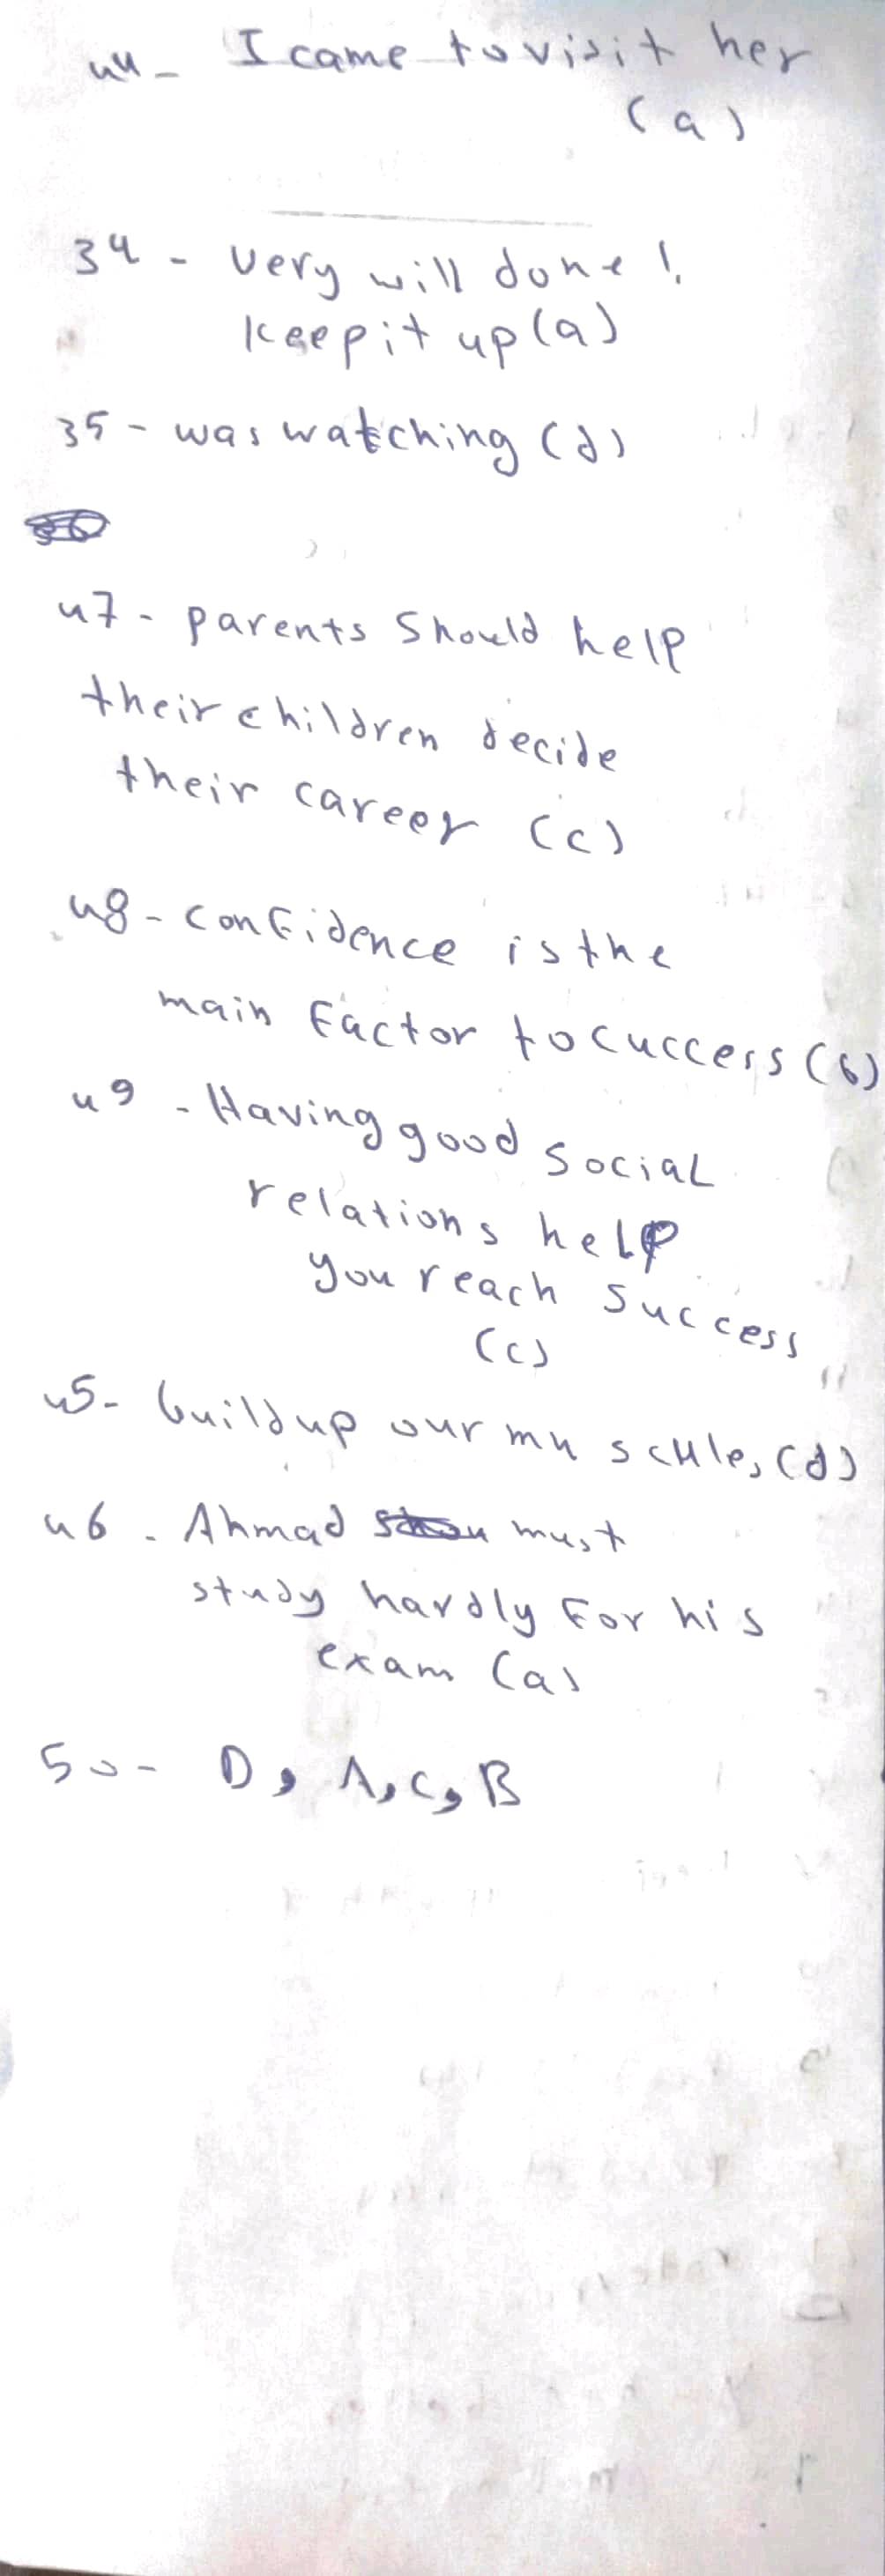 44- I came to visit her
(a)
34 - very will done!
keep it up (a)
35 - was watching (d)
47 - parents should help
their children decide
their career (c)
48 - confidence is the
main factor to cuccess (b)
49 - Having good social
relations help
you reach success
(c)
45- build up our muscules (d)
46 - Ahmad must
study hardly for his
exam (a)
50 - D, A, C, B